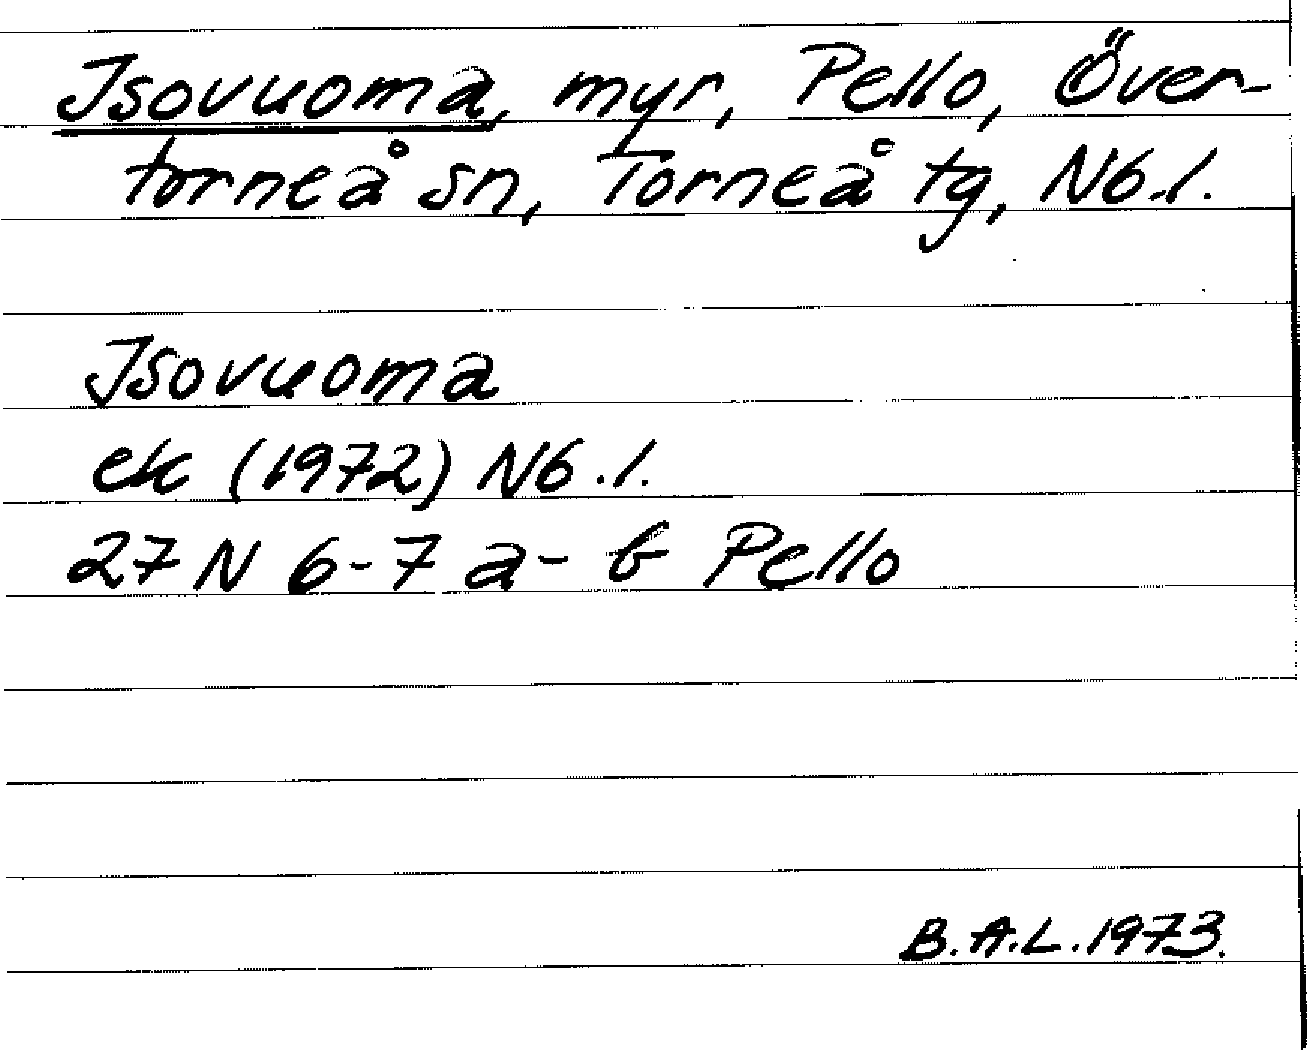 Isovuoma, myr, Pello, Över-
torneå sn, Torneå tg, Nb.l.
Isovuoma
ek (1972) Nb.l.
27 N 6-7 a-b Pello
B.A.L. 1973.